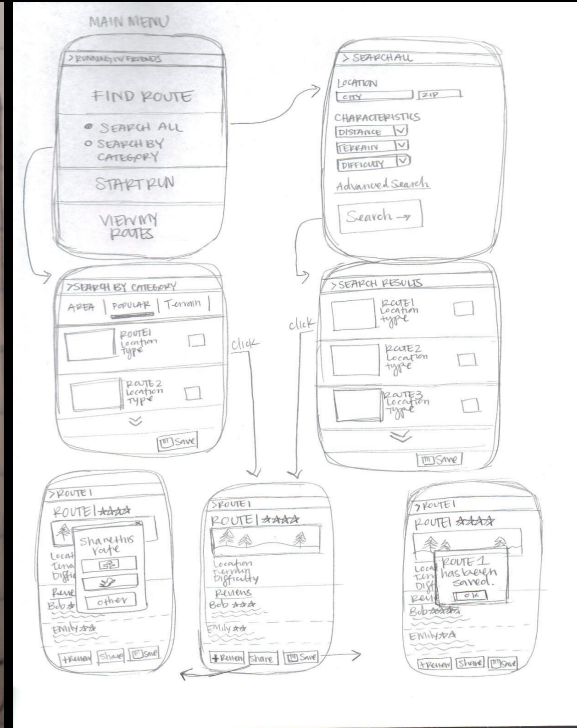 MAIN MENU
> RUNNING W/ FRIENDS
FIND ROUTE
SEARCH ALL
SEARCH BY
CATEGORY
START RUN
VIEW MY
ROUTES
> SEARCH ALL
LOCATION
CITY ZIP
CHARACTERISTICS
DISTANCE
TERRAIN
DIFFICULTY
Advanced Search
Search →
> SEARCH BY CATEGORY
AREA | POPULAR | Terrain |
ROUTE 1
Location
Type
ROUTE 2
Location
Type
Save
click
> SEARCH RESULTS
ROUTE 1
Location
Type
ROUTE 2
Location
Type
ROUTE 3
Location
Type
Save
click
> ROUTE 1
ROUTE 1
Share this
route
other
Locat
Diffi
Revie
Bob
Emily
+Review Share Save
> ROUTE 1
ROUTE 1
Location
Terrain
Difficulty
Reviews
Bob
Emily
+Review Share Save
> ROUTE 1
ROUTE 1
ROUTE 1
has been
saved.
OK
Loca
Diff
Bob
Emily
+Review Share Save